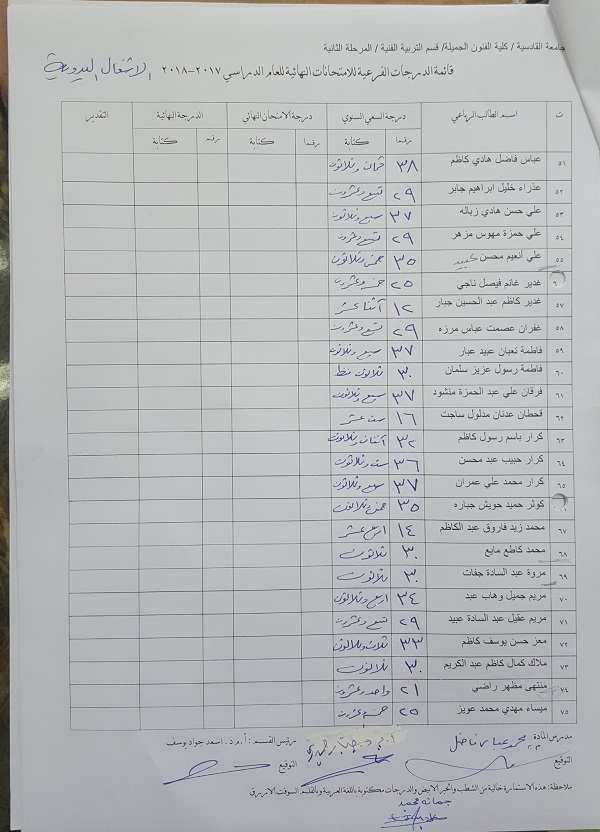 جامعة القادسية / كلية الفنون الجميلة/ قسم التربية الفنية / المرحلة الثانية
قائمة الدرجات الفرعية للامتحانات النهائية للعام الدراسي ٢٠١٧-٢٠١٨ الاشغال اليدوية
ت اسم الطالب الرباعي درجة السعي السنوي درجة الامتحان النهائي الدرجة النهائية التقدير
رقما كتابة رقما كتابة رقما كتابة
٥١ عباس فاضل هادي كاظم ٣٨ ثمان وثلاثون
٥٢ عذراء خليل ابراهيم جابر ٢٩ تسع وعشرون
٥٣ علي حسن هادي زباله ٣٧ سبع وثلاثون
٥٤ علي حمزة مهوس مزهر ٢٩ تسع وعشرون
٥٥ علي أنعيم محسن عبيد ٣٥ خمس وثلاثون
غدير غانم فيصل ناجي ٢٥ خمس وعشرون
٥٧ غدير كاظم عبد الحسين جبار ١٢ أثنا عشر
٥٨ غفران عصمت عباس مرزه ٢٩ تسع وعشرون
٥٩ فاطمة تعبان عبيد عبار ٣٧ سبع وثلاثون
٦٠ فاطمة رسول عزيز سلمان ٣٠ ثلاثون فقط
٦١ فرقان علي عبد الحمزة منشود ٣٧ سبع وثلاثون
٦٢ قحطان عدنان مدلول ساجت ١٦ ست عشر
٦٣ كرار باسم رسول كاظم ٣٢ أثنان وثلاثون
٦٤ كرار حبيب عبد محسن ٣٦ ست وثلاثون
٦٥ كرار محمد علي عمران ٣٧ سبع وثلاثون
كوثر حميد حويش جباره ٣٥ خمس وثلاثون
٦٧ محمد زيد فاروق عبد الكاظم ١٤ اربع عشر
٦٨ محمد كاطع مايع ٣٠ ثلاثون
٦٩ مروة عبد السادة جفات ٣٠ ثلاثون
٧٠ مريم جميل وهاب عبد ٣٤ اربع وثلاثون
٧١ مريم عقيل عبد السادة عبيد ٢٩ تسع وعشرون
٧٢ معز حسن يوسف كاظم ٣٣ ثلاث وثلاثون
٧٣ ملاك كمال كاظم عبد الكريم ٣٠ ثلاثون
٧٤ منتهى مظهر راضي ٢١ واحد وعشرون
٧٥ ميساء مهدي محمد عويز ٢٥ خمس وعشرون
مدرس المادة محمد عباس فاضل أ.م.د. رئيس القسم : أ.م.د. اسعد جواد يوسف
التوقيع التوقيع
ملاحظة: هذه الاستمارة خالية من الشطب والحبر الابيض والدرجات مكتوبة باللغة العربية وبالقلم السوفت الازرق
جمانه محمد